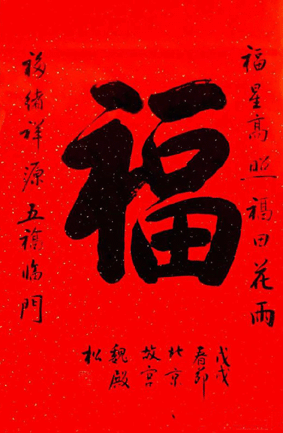 福
福星高照福田花雨
福緒祥源五福臨門
戊戌
春節
北京
故宮
魏殿
松